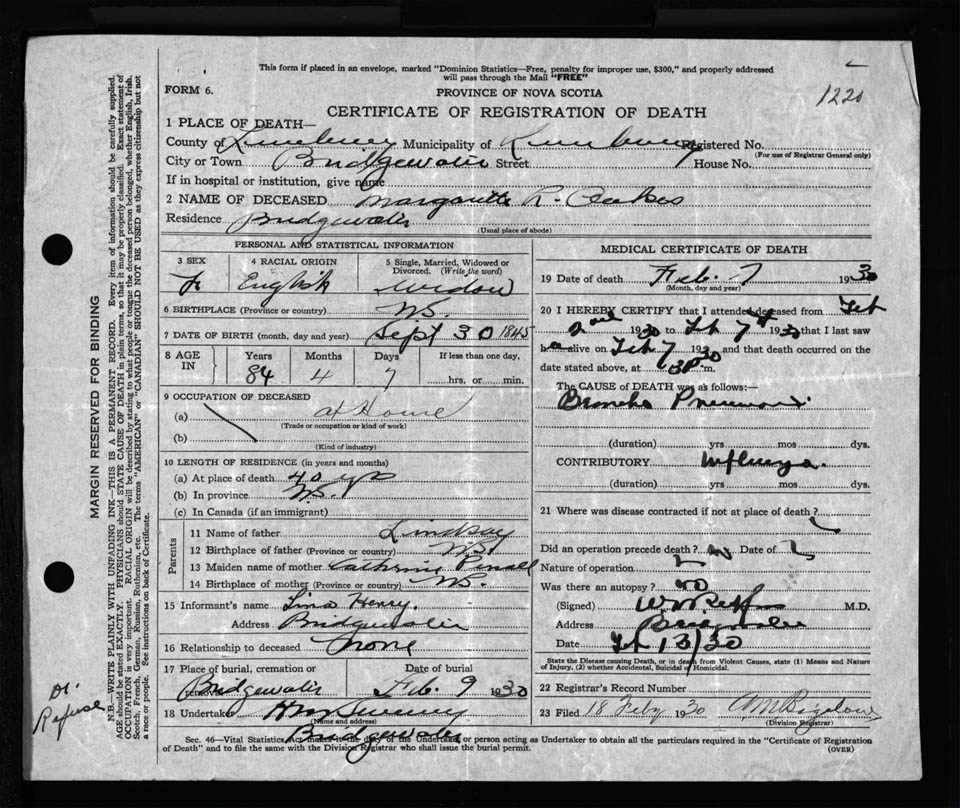 This form if placed in an envelope, marked "Dominion Statistics—Free, penalty for improper use, $300," and properly addressed
will pass through the Mail "FREE"
FORM 6.
PROVINCE OF NOVA SCOTIA
1220
CERTIFICATE OF REGISTRATION OF DEATH
1 PLACE OF DEATH—
County of Lunenburg Municipality of Lunenburg Registered No.
(For use of Registrar General only)
City or Town Bridgewater Street House No.
If in hospital or institution, give name
2 NAME OF DECEASED R.
Residence Bridgewater
(Usual place of abode)
PERSONAL AND STATISTICAL INFORMATION
3 SEX 4 RACIAL ORIGIN 5 Single, Married, Widowed or Divorced. (Write the word)
F English Widow
6 BIRTHPLACE (Province or country) NS.
7 DATE OF BIRTH (month, day and year) Sept 30 1845
8 AGE IN Years Months Days If less than one day,
84 4 7 hrs. or min.
9 OCCUPATION OF DECEASED
(a) at Home
(Trade or occupation or kind of work)
(b)
(Kind of industry)
10 LENGTH OF RESIDENCE (in years and months)
(a) At place of death 40 yrs
(b) In province NS.
(c) In Canada (if an immigrant)
Parents
11 Name of father Lindsay
12 Birthplace of father (Province or country) NS.
13 Maiden name of mother Catherine
14 Birthplace of mother (Province or country) NS.
15 Informant's name Lina Henry.
Address Bridgewater
16 Relationship to deceased None
17 Place of burial, cremation or removal Date of burial
Bridgewater Feb. 9 1930
18 Undertaker Sweeney
(Name and address)
Bridgewater
MEDICAL CERTIFICATE OF DEATH
19 Date of death Feb. 7 1930
(Month, day and year)
20 I HEREBY CERTIFY that I attended deceased from Feb
2nd 1930 to Feb 7th 1930 that I last saw
h alive on Feb 7 1930 and that death occurred on the
date stated above, at m.
The CAUSE OF DEATH was as follows:—
Broncho Pneumonia
(duration) yrs mos dys.
CONTRIBUTORY Influenza.
(duration) yrs. mos dys.
21 Where was disease contracted if not at place of death?
Did an operation precede death? no Date of
Nature of operation
Was there an autopsy? no
(Signed) M.D.
Address Bridgewater
Date Feb 13/30
State the Disease causing Death, or in death from Violent Causes, state (1) Means and Nature
of Injury, (2) whether Accidental, Suicidal or Homicidal.
22 Registrar's Record Number
23 Filed 18 Feby 1930
(Division Registrar)
Sec. 46—Vital Statistics Act makes it the duty of the Undertaker or person acting as Undertaker to obtain all the particulars required in the "Certificate of Registration
of Death" and to file the same with the Division Registrar who shall issue the burial permit.
(OVER)
MARGIN RESERVED FOR BINDING
N.B.—WRITE PLAINLY WITH UNFADING INK—THIS IS A PERMANENT RECORD. Every item of information should be carefully supplied.
AGE should be stated EXACTLY. PHYSICIANS should STATE CAUSE OF DEATH in plain terms, so that it may be properly classified. Exact statement of
OCCUPATION is very important. RACIAL ORIGIN will be described by stating to what people or tongue the deceased person belonged, whether English, Irish,
Scotch, French, German, Russian, Ruthenian, etc. The terms "AMERICAN" or "CANADIAN" SHOULD NOT BE USED as they express citizenship but not
a race or people. See instructions on back of Certificate.